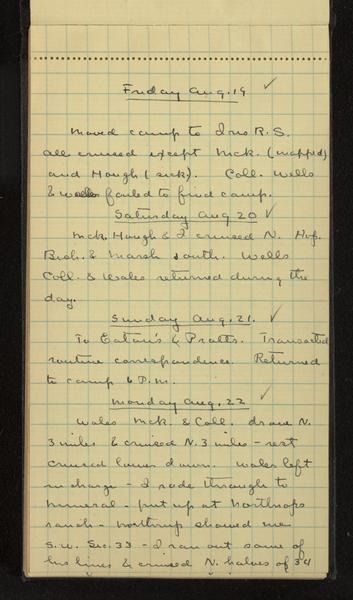 Friday Aug. 19 ✓
Moved camp to Ino R.S.
all cruised except McK. (mapped)
and Hough (sick). Coll. Wells
& Wales failed to find camp.
Saturday Aug 20 ✓
McK. Hough & I cruised N. Huf.
& Marsh south. Wells
Coll. & Wales returned during the
day.
Sunday Aug. 21. ✓
To Eaton's & Pratts. Transacted
routine correspondence. Returned
to camp 6 P.m.
Monday Aug. 22 ✓
Wales McK. & Coll. drove N.
3 miles & cruised N. 3 miles – rest
cruised lower down. Wales left
in charge – I rode through to
Mineral – put up at Northrops
ranch – Northrup showed me
S.W. Sec. 33 – I ran out some of
his lines & cruised N. halves of 34